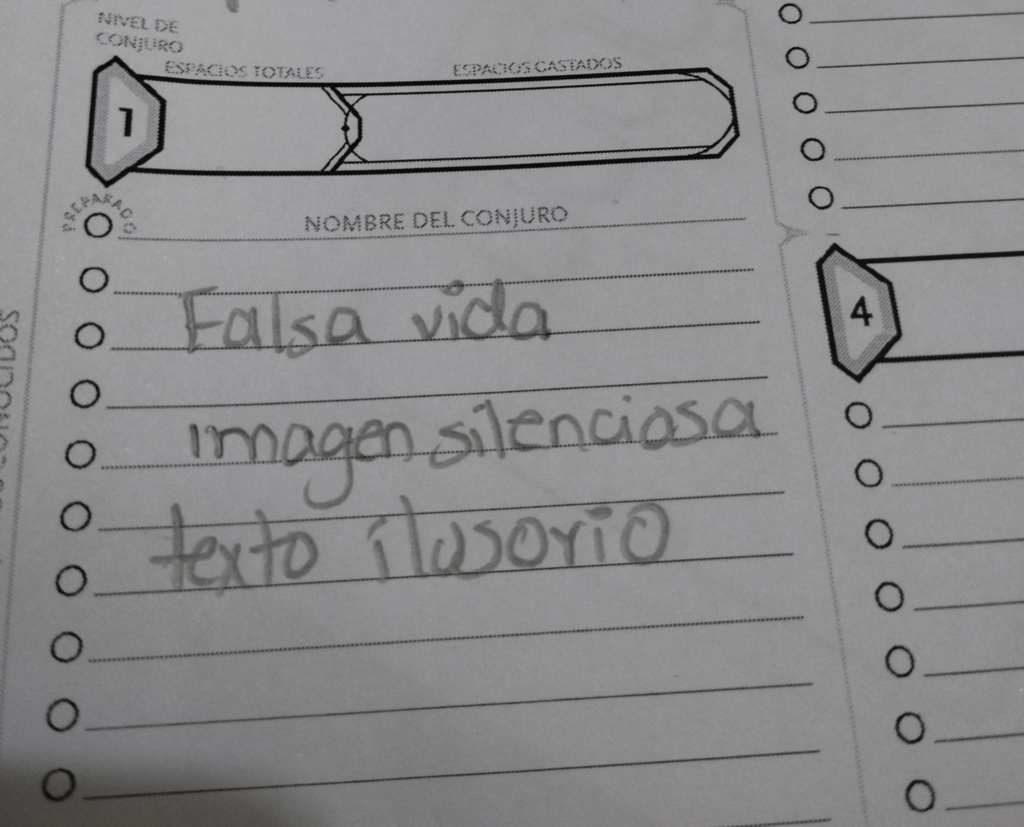 NIVEL DE
CONJURO
ESPACIOS TOTALES
ESPACIOS GASTADOS
1
PREPARADO
NOMBRE DEL CONJURO
Falsa vida
imagen silenciosa
texto ilusorio
4